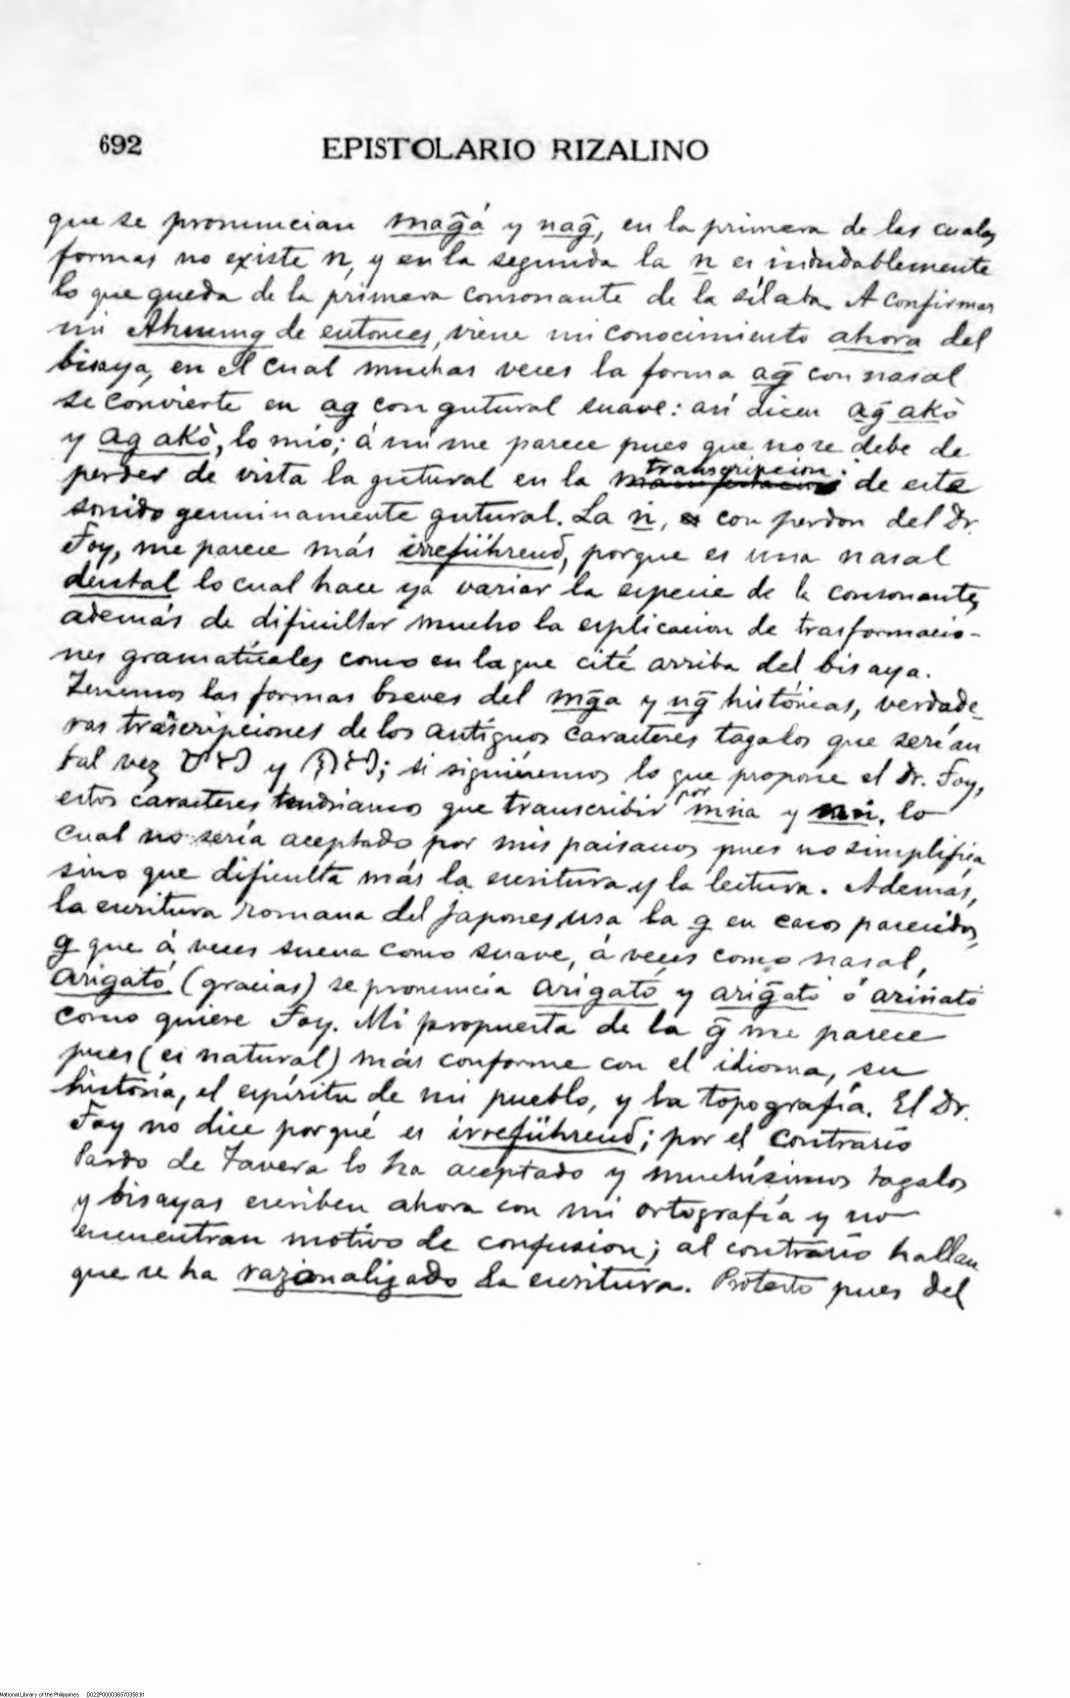 692
EPISTOLARIO RIZALINO
que se pronuncian mag̃á y nag̃, en la primera de las cuales
formas no existe n, y en la segunda la n es indudablemente
lo que queda de la primera consonante de la sílaba. A confirmar
mi Ahnung de entonces, viene mi conocimiento ahora del
bisaya, en el cual muchas veces la forma ag̃ con nasal
se convierte en ag con gutural suave: así dicen ag̃ akò
y ag akò, lo mío; á mí me parece pues que no se debe de
perder de vista la gutural en la transcripcion de este
sonido genuinamente gutural. La ñ, con perdon del Dr.
Foy, me parece más irreführend, porque es una nasal
dental lo cual hace ya variar la especie de la consonante,
además de dificultar mucho la esplicacion de trasformacio-
nes gramaticales como en la que cité arriba del bisaya.
Tenemos las formas breves del mg̃a y ng̃ históricas, verdade-
ras transcripciones de los antiguos caracteres tagalos que serían
tal vez y ; si siguiéremos lo que propone el Dr. Foy,
estos caracteres tendriamos que transcribir por mña y nñ, lo
cual no sería aceptado por mis paisanos pues no simplifica
sino que dificulta más la escritura y la lectura. Además,
la escritura romana del japones, usa la g en casos parecidos,
g que á veces suena como suave, á veces como nasal,
arigató (gracias) se pronuncia arigató y arig̃ató ó ariñató
como quiere Foy. Mi propuesta de la g̃ me parece
pues (es natural) más conforme con el idioma, su
historia, el espíritu de mi pueblo, y la topografía. El Dr.
Foy no dice porqué es irreführend; por el contrario
Pardo de Tavera lo ha aceptado y muchísimos tagalos
y bisayas escriben ahora con mi ortografía y no
encuentran motivo de confusion; al contrario hallan
que se ha razionalizado la escritura. Protesto pues del
National Library of the Philippines